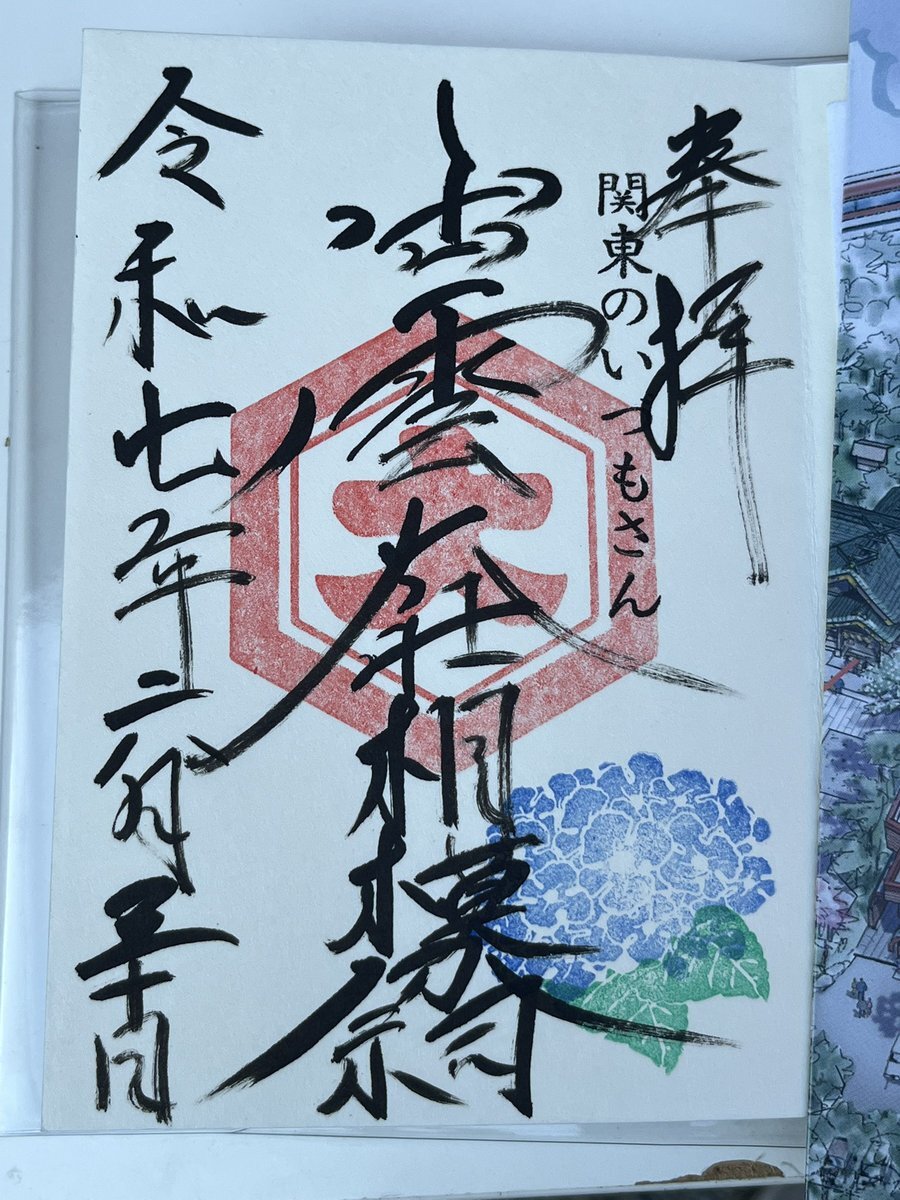 奉拝
関東のいつもさん
出雲大社相模分祠
令和七年六月三十日